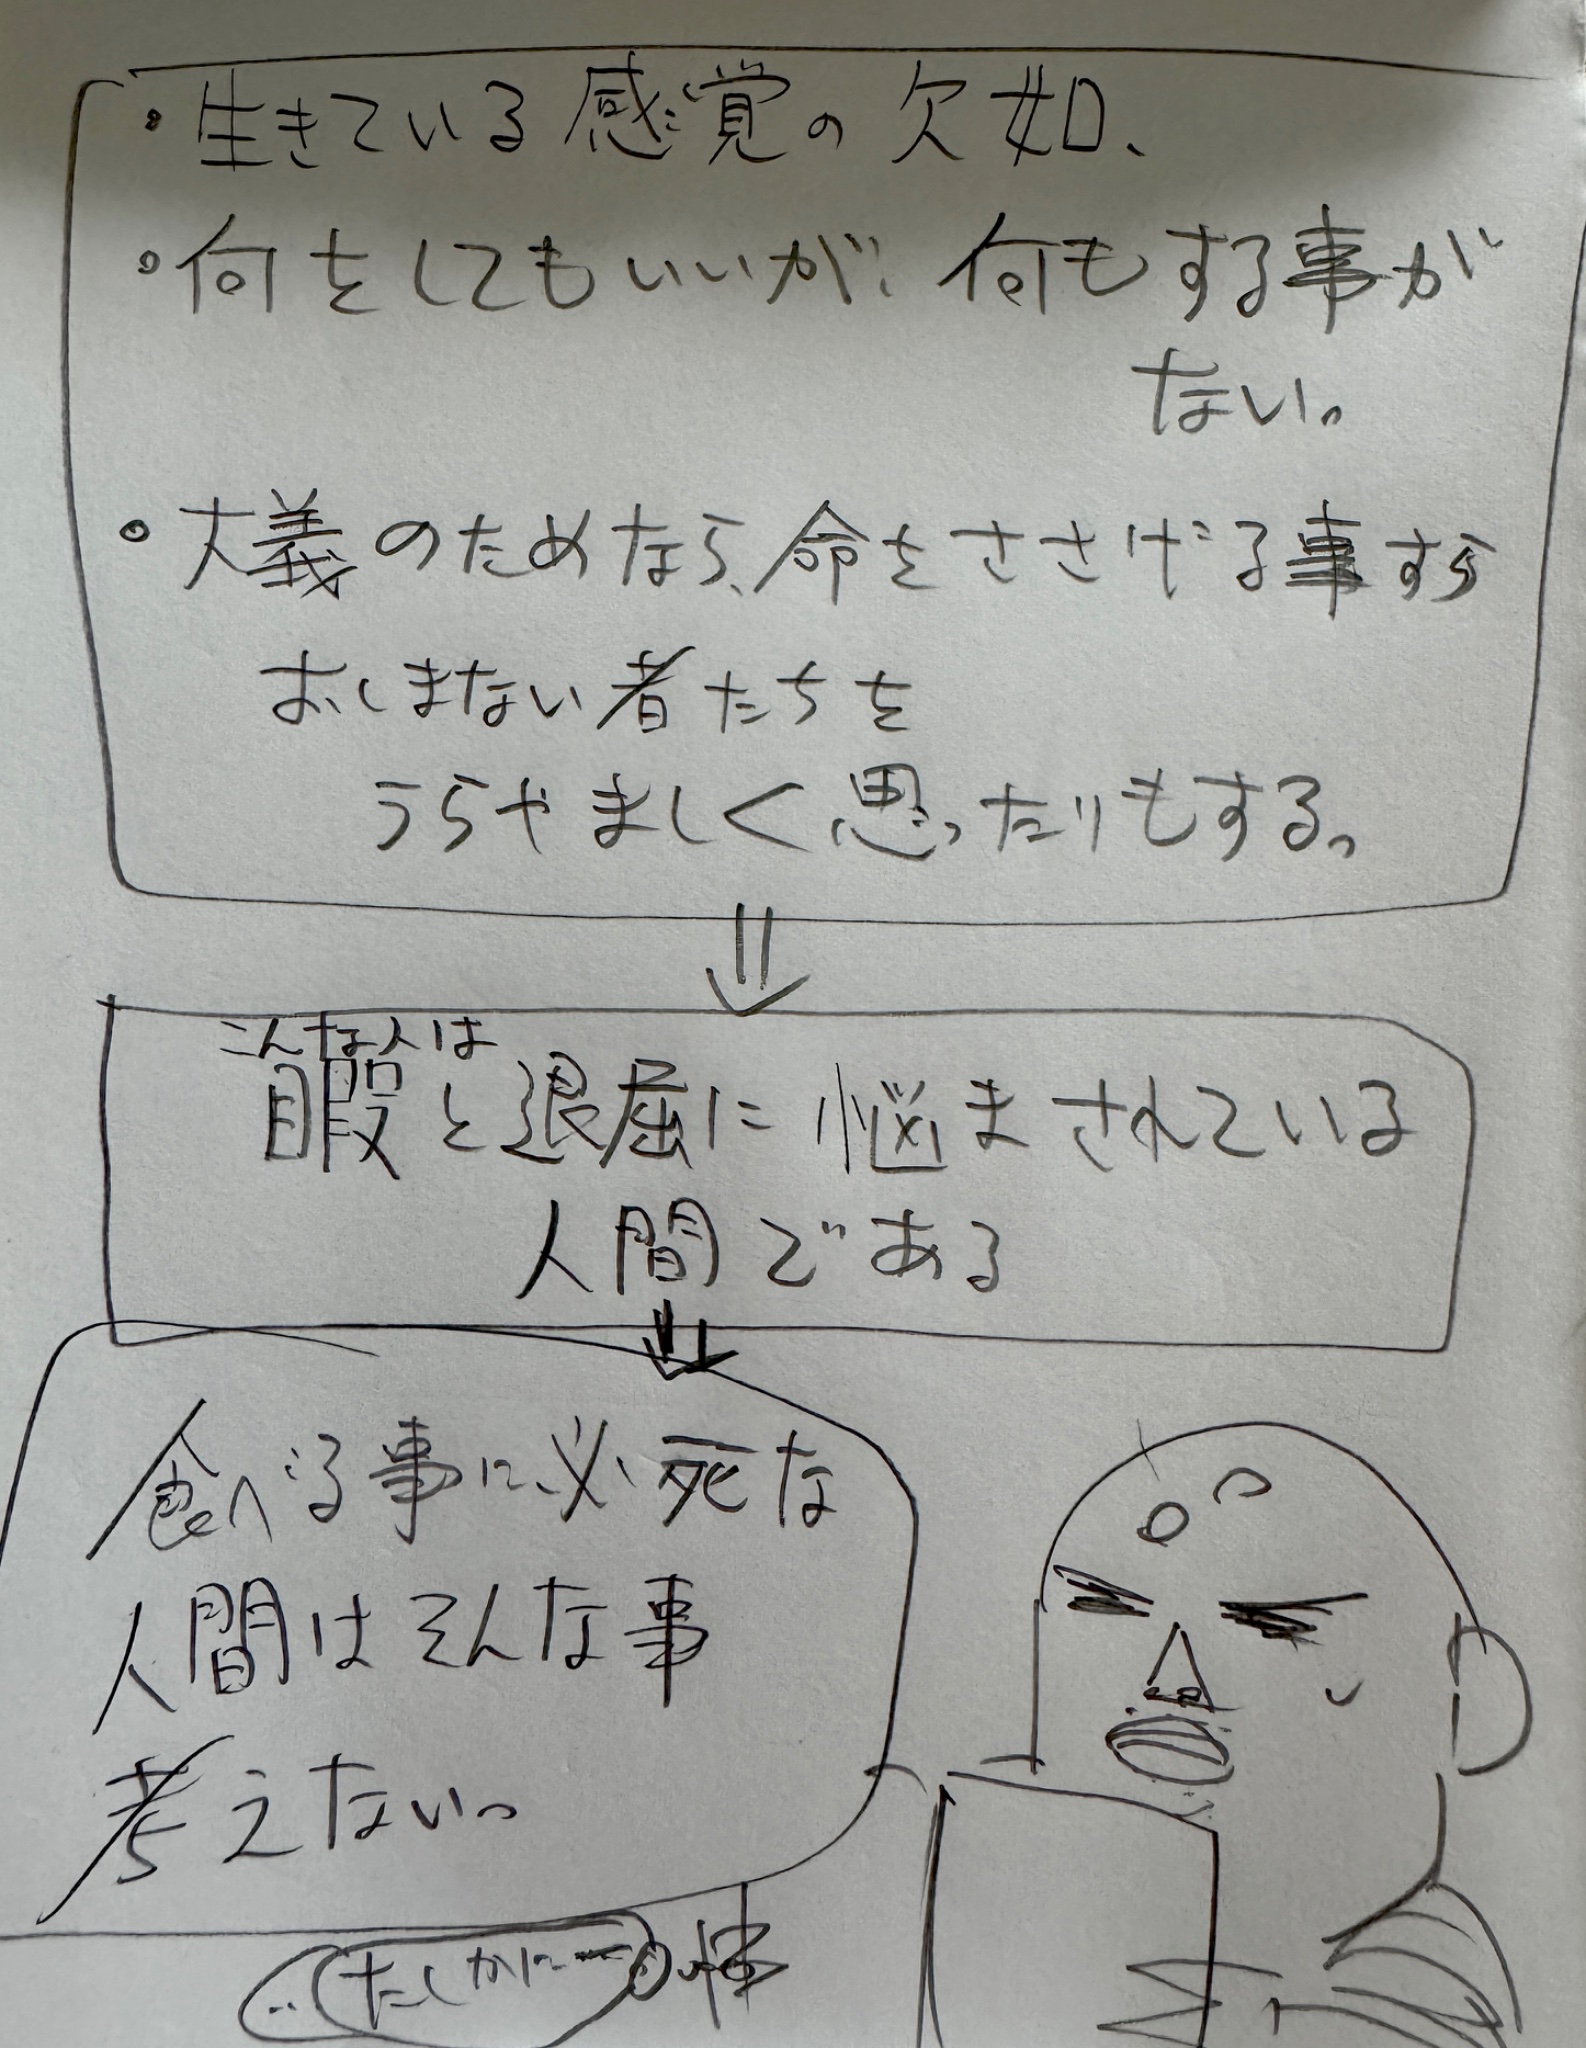 ・生きている感覚の欠如、
・何をしてもいいが、何もする事が
ない。
・大義のためなら、命をささげる事すら
おしまない者たちを
うらやましく思ったりもする。
こんな人は
暇と退屈に悩まされている
人間である
食べる事に必死な
人間はそんな事
考えない。
たしかにー